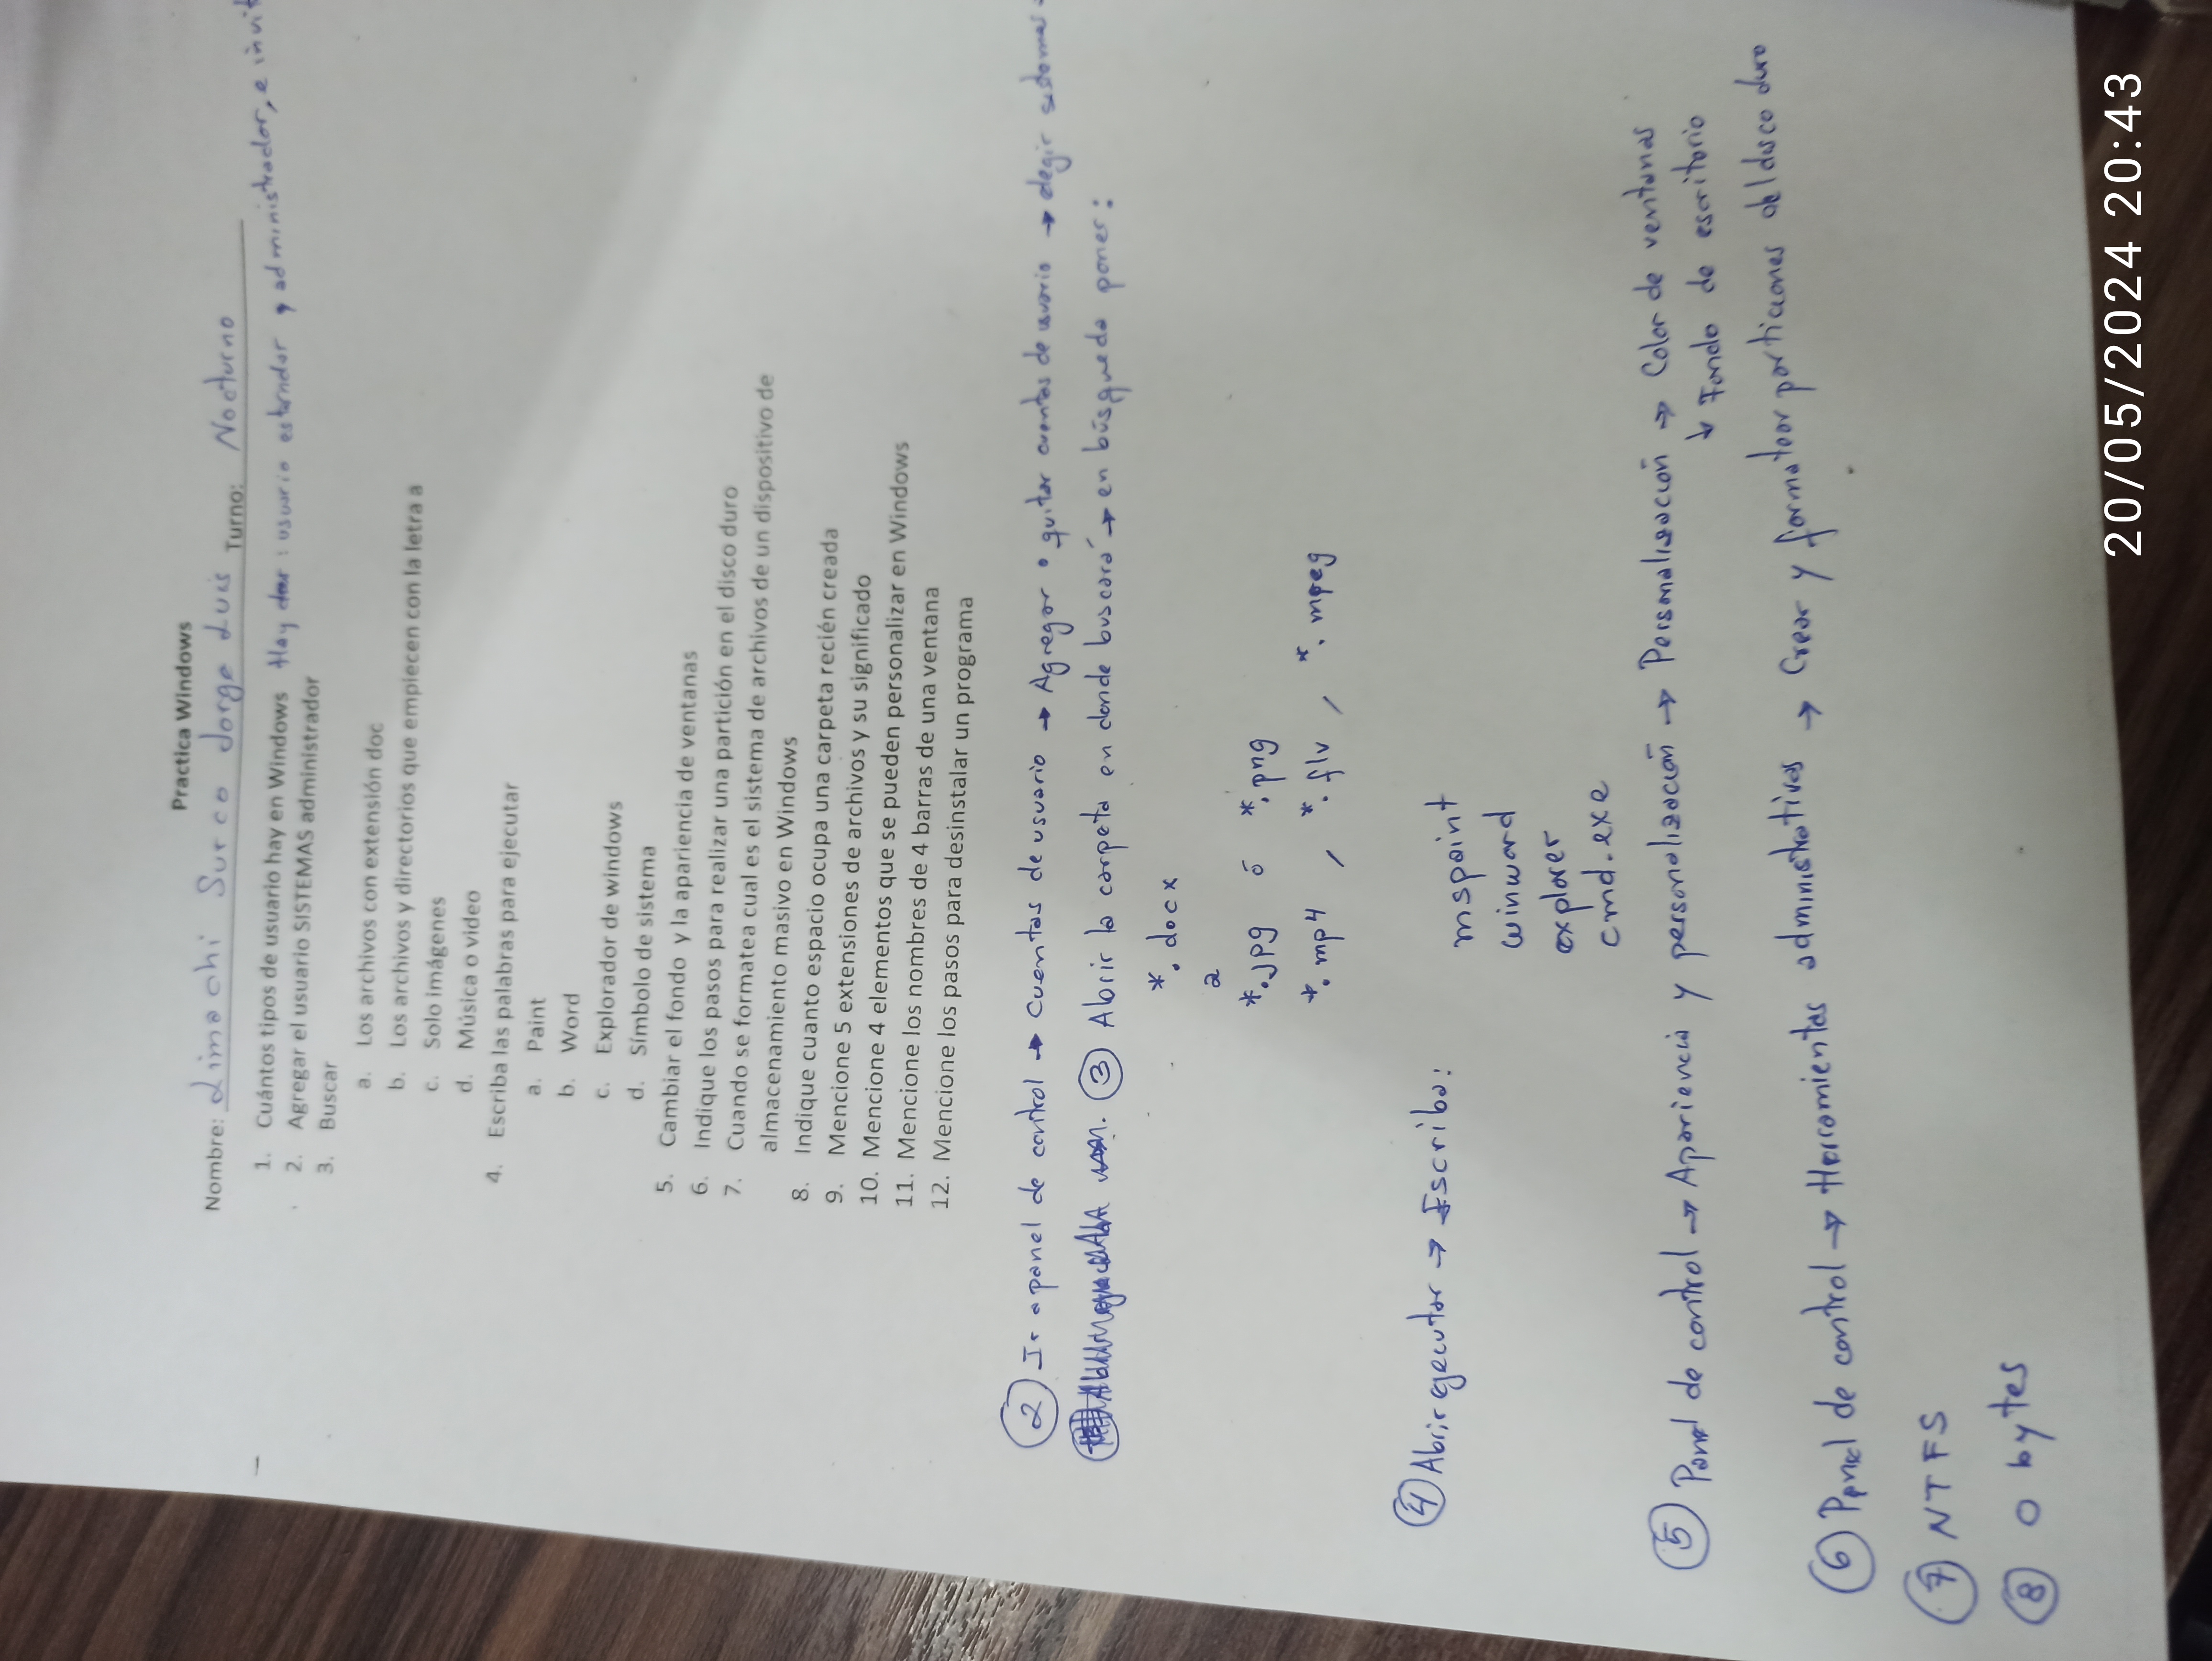 Practica Windows
Nombre: Limachi Surco Jorge Luis Turno: Nocturno
1. Cuántos tipos de usuario hay en Windows Hay : usuario estandar y administrador, e invit
2. Agregar el usuario SISTEMAS administrador
3. Buscar
a. Los archivos con extensión doc
b. Los archivos y directorios que empiecen con la letra a
c. Solo imágenes
d. Música o video
4. Escriba las palabras para ejecutar
a. Paint
b. Word
c. Explorador de windows
d. Símbolo de sistema
5. Cambiar el fondo y la apariencia de ventanas
6. Indique los pasos para realizar una partición en el disco duro
7. Cuando se formatea cual es el sistema de archivos de un dispositivo de
almacenamiento masivo en Windows
8. Indique cuanto espacio ocupa una carpeta recién creada
9. Mencione 5 extensiones de archivos y su significado
10. Mencione 4 elementos que se pueden personalizar en Windows
11. Mencione los nombres de 4 barras de una ventana
12. Mencione los pasos para desinstalar un programa
2 Ir a panel de control → Cuentas de usuario → Agregar o quitar cuentas de usuario → elegir sistemas
3 Abrir la carpeta en donde buscará → en búsqueda poner:
*.docx
a
*.jpg ó *.png
*.mp4 , *.flv , *.mpeg
4 Abrir ejecutar → Escriba:
mspaint
winword
explorer
cmd.exe
5 Panel de control → Apariencia y personalización → Personalización → Color de ventanas
↓ Fondo de escritorio
6 Panel de control → Herramientas administrativas → Crear y formatear particiones del disco duro
7 NTFS
8 0 bytes
20/05/2024 20:43